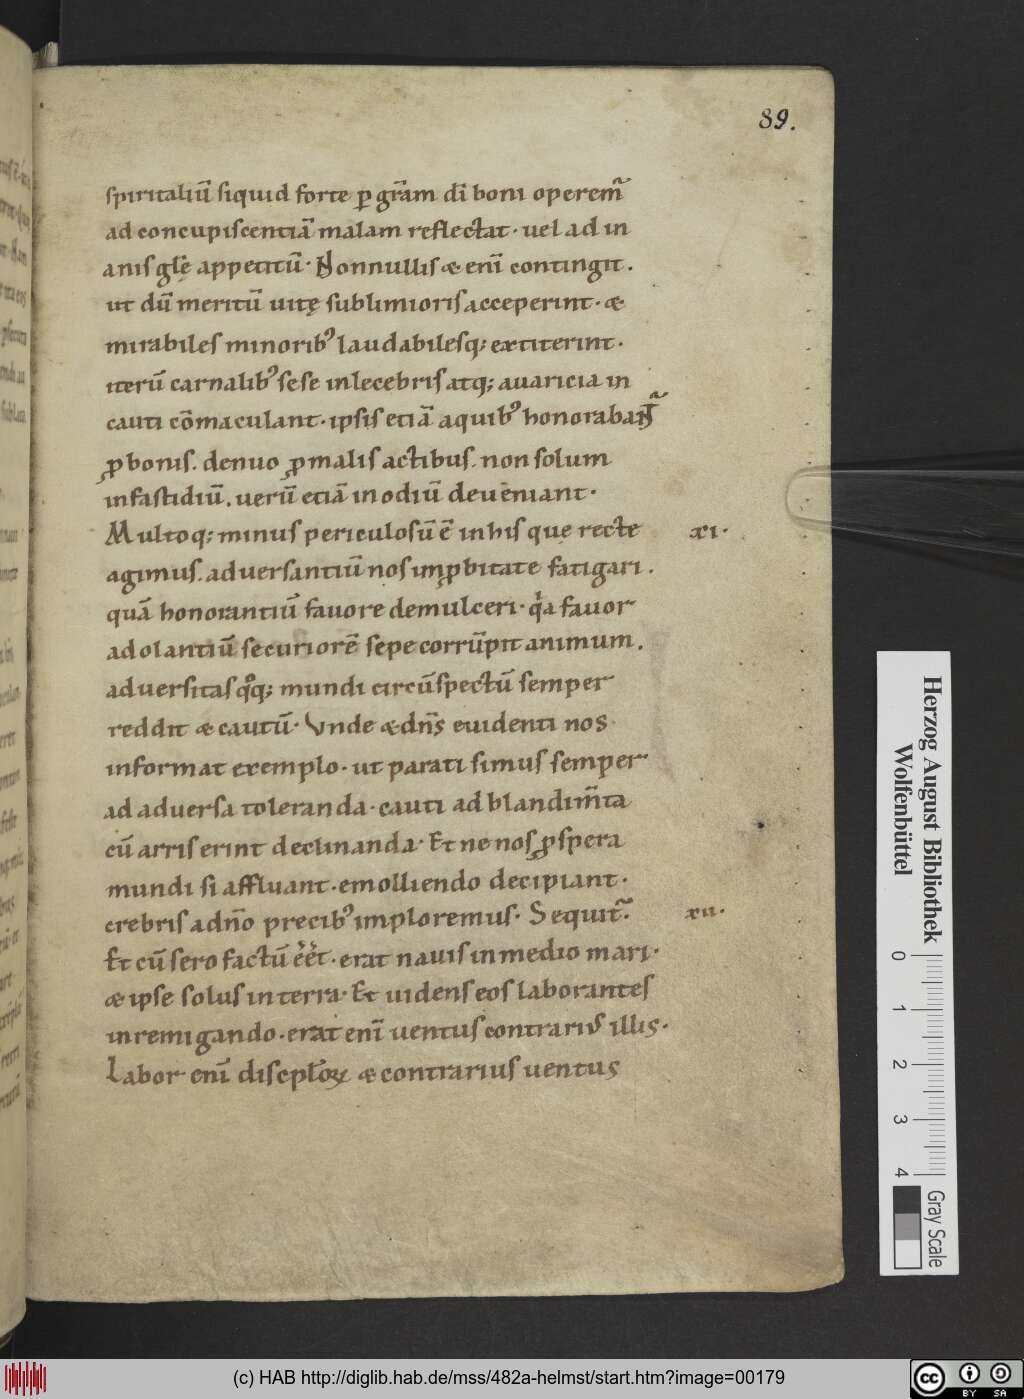 89.
spiritaliū siquid forte ꝑ gr̄am dī boni operem̃
ad concupiscentiā malam reflectat· uel ad in
anis glę̄ appetitū· Nonnullis & enī contingit.
ut dū meritū uitę sublimioris acceperint· &
mirabiles minoribꝰ laudabilesq; extiterint·
iterū carnalibꝰ sese inlecebris atq; auaricia in
cauti cōmaculant· ipsis etiā a quibꝰ honorabañt
ꝓ bonis. denuo ꝓ malis actibus. non solum
in fastidiū. uerū etiā in odiū deueniant·
Multoq; minus periculosū ē in his que recte xi·
agimus. aduersantiū nos imꝓbitate fatigari.
quā honorantiū fauore demulceri· qͥa fauor
adolantiū securiorē sepe corrūpit animum.
aduersitas qͦq; mundi circūspectū semper
reddit & cautū· Vnde & dn̄s euidenti nos
informat exemplo· ut parati simus semper
ad aduersa toleranda· cauti ad blandim̄ta
cū arriserint declinanda· Et ne nos ꝓspera
mundi si affluant· emolliendo decipiant·
crebris a dn̄o precibꝰ imploremus· Sequit̃. xii·
Et cū sero factū eēt· erat nauis in medio mari·
& ipse solus in terra· Et uidens eos laborantes
in remigando· erat enī uentus contrariꝰ illis·
Labor enī discipl̄oꝝ & contrarius uentus
Herzog August Bibliothek
Wolfenbüttel
0 1 2 3 4
Gray Scale
(c) HAB http://diglib.hab.de/mss/482a-helmst/start.htm?image=00179
cc BY SA